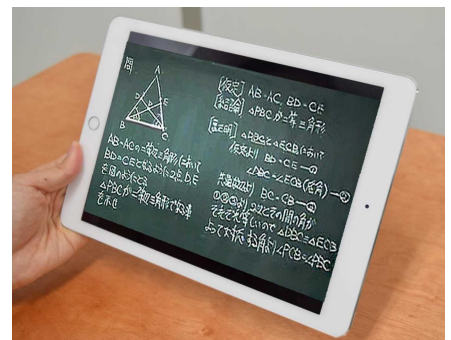 問
A
D P E
B C
AB=ACの二等辺三角形において
BD=CEとなるように点D,E
を図のようにとる
△PBCが二等辺三角形である事
を示せ
[仮定] AB=AC, BD=CE
[結論] △PBCが二等辺三角形
[証明] △DBCと△ECBにおいて
仮定より BD=CE―①
∠DBC=∠ECB(底角)―②
共通だから BC=CB―③
①②③より 2辺とその間の角が
それぞれ等しいので △DBC≡△ECB
よって対応する角より∠PCB=∠PBC